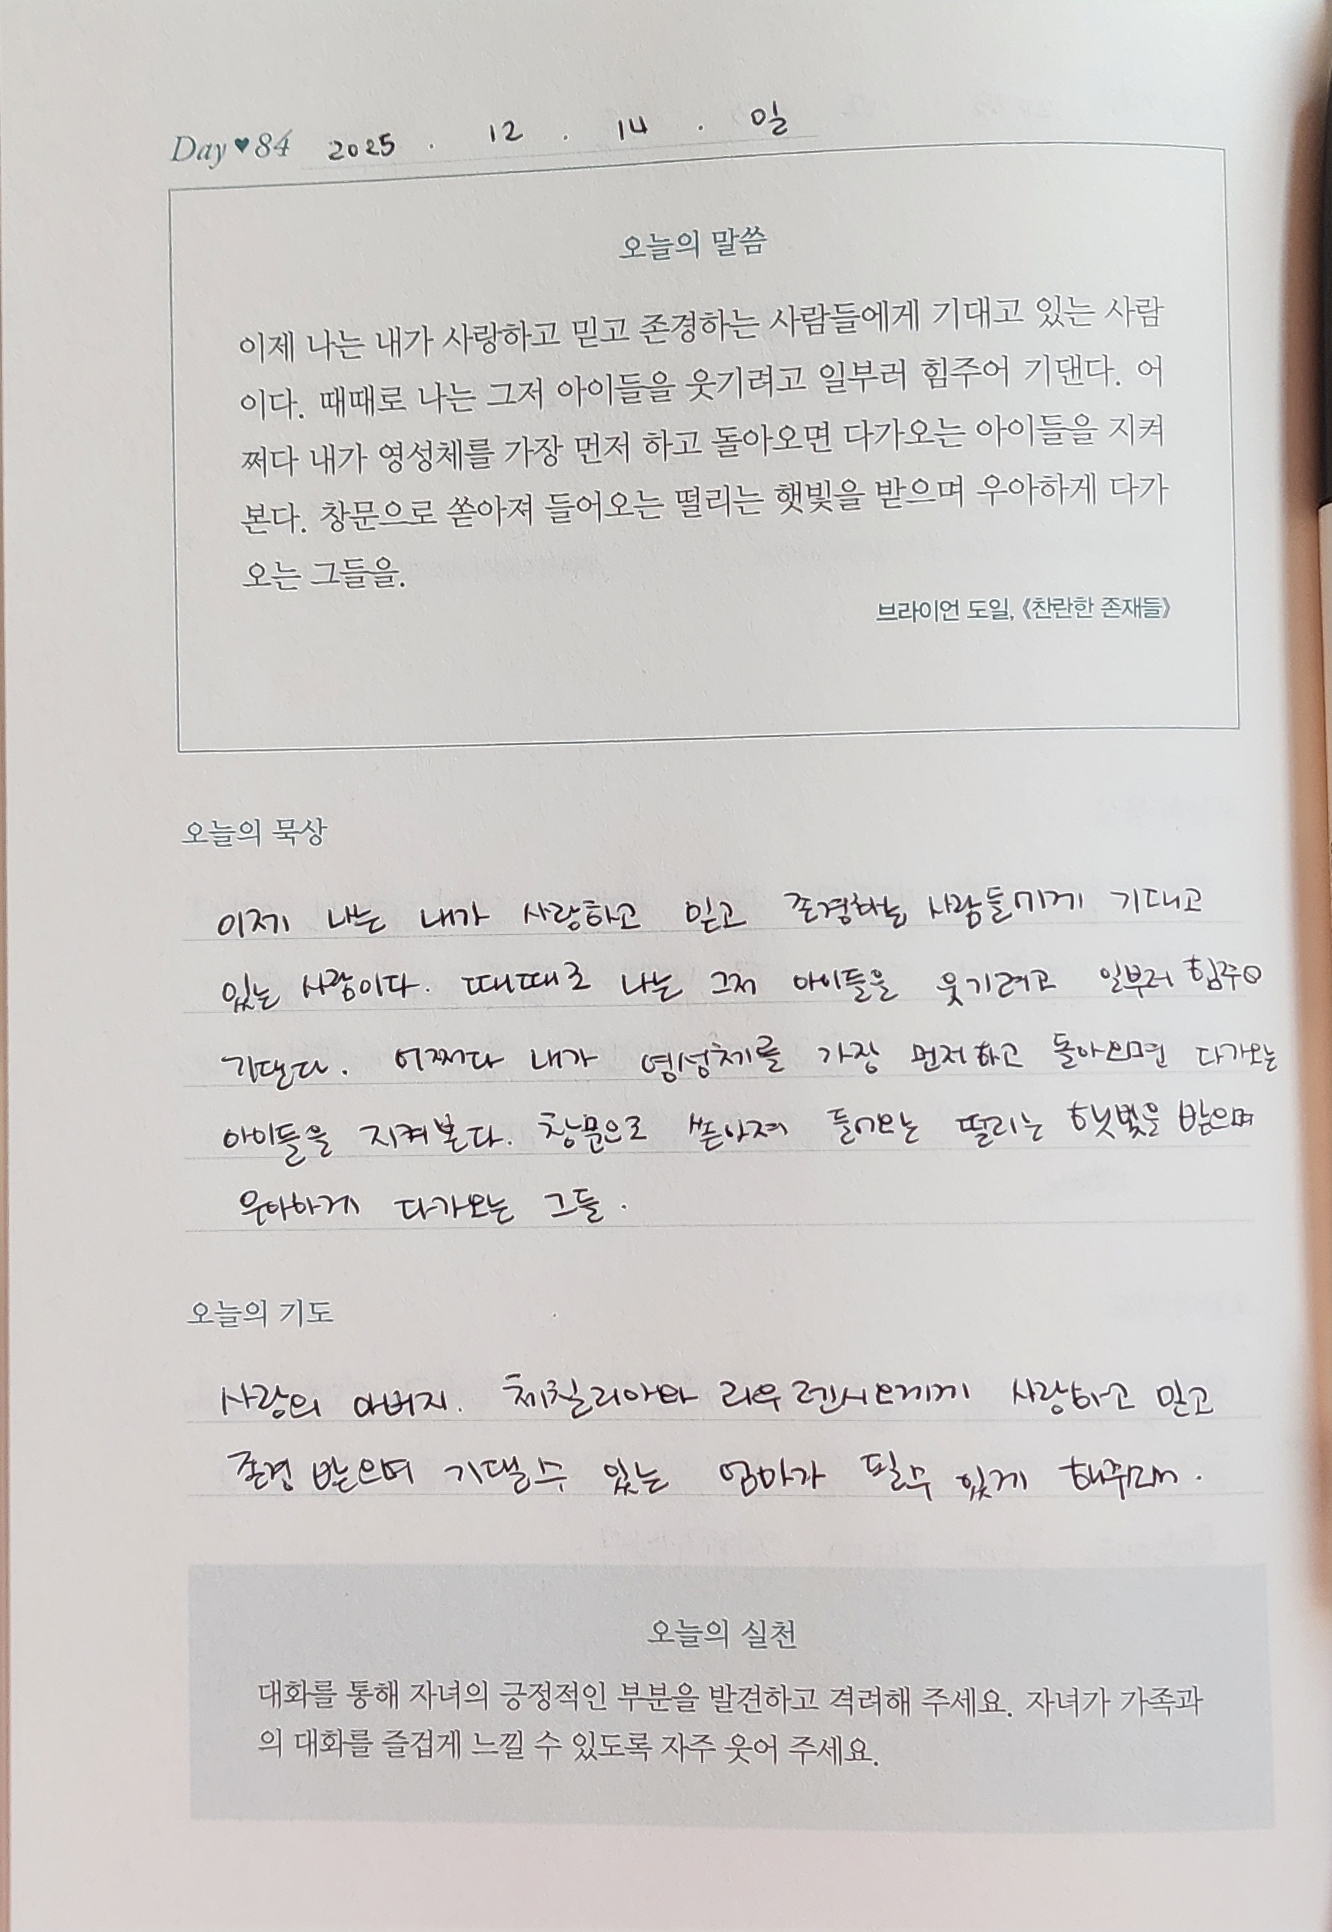 Day ♥ 84 2025 . 12 . 14 . 일
오늘의 말씀
이제 나는 내가 사랑하고 믿고 존경하는 사람들에게 기대고 있는 사람
이다. 때때로 나는 그저 아이들을 웃기려고 일부러 힘주어 기댄다. 어
쩌다 내가 영성체를 가장 먼저 하고 돌아오면 다가오는 아이들을 지켜
본다. 창문으로 쏟아져 들어오는 떨리는 햇빛을 받으며 우아하게 다가
오는 그들을.
브라이언 도일, 《찬란한 존재들》
오늘의 묵상
이제 나는 내가 사랑하고 믿고 존경하는 사람들에게 기대고
있는 사람이다. 때때로 나는 그저 아이들을 웃기려고 일부러
기댄다. 어쩌다 내가 영성체를 가장 먼저 하고 돌아오면 다가오는
아이들을 지켜본다. 창문으로 쏟아져 들어오는 떨리는 햇빛을 받으며
우아하게 다가오는 그들.
오늘의 기도
사랑의 아버지. 체칠리아와 라우렌시오에게 사랑하고 믿고
존경 받으며 기댈수 있는 엄마가 될수 있게
오늘의 실천
대화를 통해 자녀의 긍정적인 부분을 발견하고 격려해 주세요. 자녀가 가족과
의 대화를 즐겁게 느낄 수 있도록 자주 웃어 주세요.